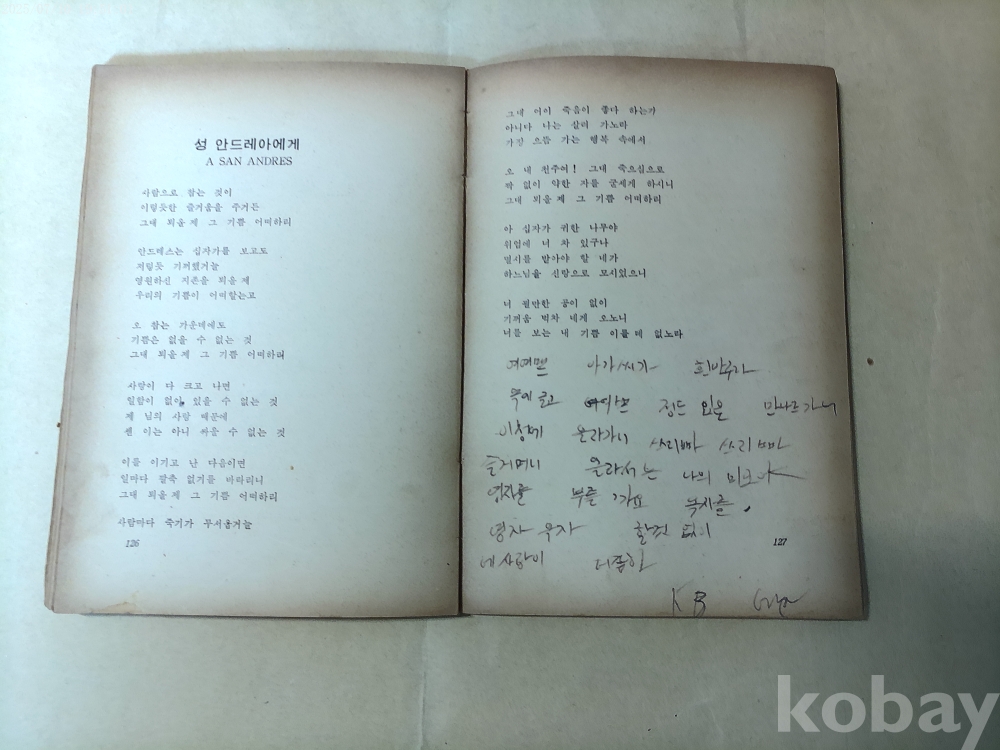 성 안드레아에게
A SAN ANDRES
사랑으로 참는 것이
이렇듯한 즐거움을 주거든
그대 뵈올 제 그 기쁨 어떠하리
안드레스는 십자가를 보고도
저렇듯 기꺼했거늘
영원하신 지존을 뵈올 제
우리의 기쁨이 어떠할는고
오 참는 가운데에도
기쁨은 없을 수 없는 것
그대 뵈올 제 그 기쁨 어떠하려
사랑이 다 크고 나면
일함이 없이 있을 수 없는 것
제 님의 사랑 때문에
센 이는 아니 싸울 수 없는 것
이를 이기고 난 다음이면
일마다 팔죽 없기를 바라리니
그대 뵈올 제 그 기쁨 어떠하리
사람마다 죽기가 무서웁거늘
126
그대 어이 죽음이 좋다 하는가
아니다 나는 살러 가노라
가장 으뜸 가는 행복 속에서
오 내 천주여! 그대 죽으심으로
짝 없이 약한 자를 굳세게 하시니
그대 뵈올 제 그 기쁨 어떠하리
아 십자가 귀한 나무야
위엄에 너 차 있구나
멸시를 받아야 할 네가
하느님을 신랑으로 모시었으니
너 필만한 공이 없이
기꺼움 벅차 네게 오노니
너를 보는 내 기쁨 이를 데 없노라
아가씨가
정든 님을 만나르가니
올라가니 쓰리빠 쓰리빠
슬거머니 올라서는 나의
영자를
영자 옥자 할것 없이
네 사람이
K B
127
kobay